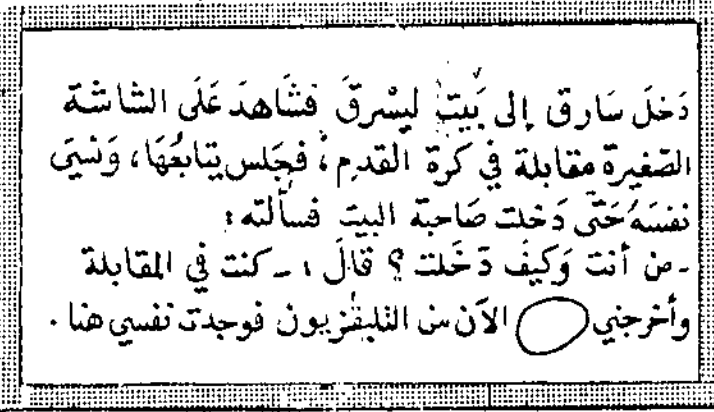 دَخلَ سَارق إلى بَيتٍ ليسْرقَ فشَاهدَ عَلَى الشاشة
الصّغيرة مقابلة في كرة القدمِ، فجَلس يتابعُهَا، وَنسيَ
نفسَهُ حَتّى دَخلت صَاحبة البيت فسألته :
ـ من أنت وَكيفَ دَخَلت ؟ قالَ : ـ كنت في المقابلة
وأخرجني الآن من التليفزيون فوجدت نفسي هنا .